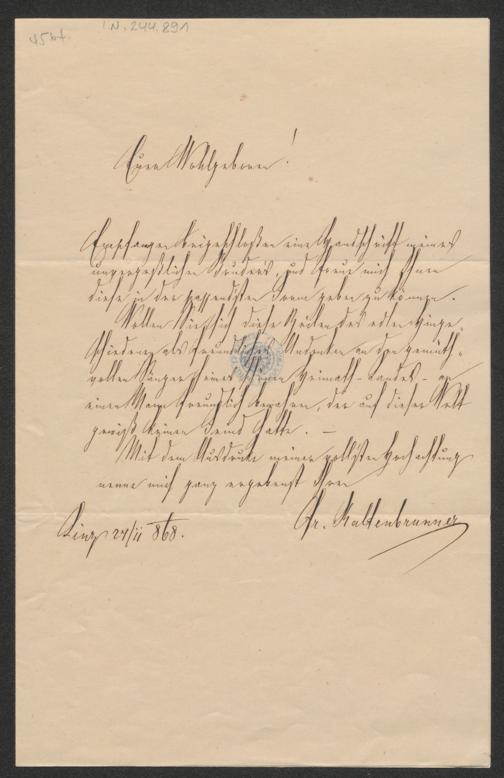 I.N. 244.891
Euer Wohlgeboren!
Empfangen beigeschloßen eine Handschrift meines
unvergeßlichen Bruders, und freue mich Ihnen
diese in der passendsten Form geben zu können.
Wollen Sie sich diese Zeilen des edlen Hinge-
schiedenen als freundliches Andenken an den gemüth-
vollen Sänger seines Heimath-Landes – an
einen Mann freundlich bewahren, der auf dieser Welt
gewiß keinen Feind hatte. –
Mit dem Ausdrucke meiner vollsten Hochachtung
nenne mich ganz ergebenst Ihren
Linz 24/11 868.
Fr. Kaltenbrunner